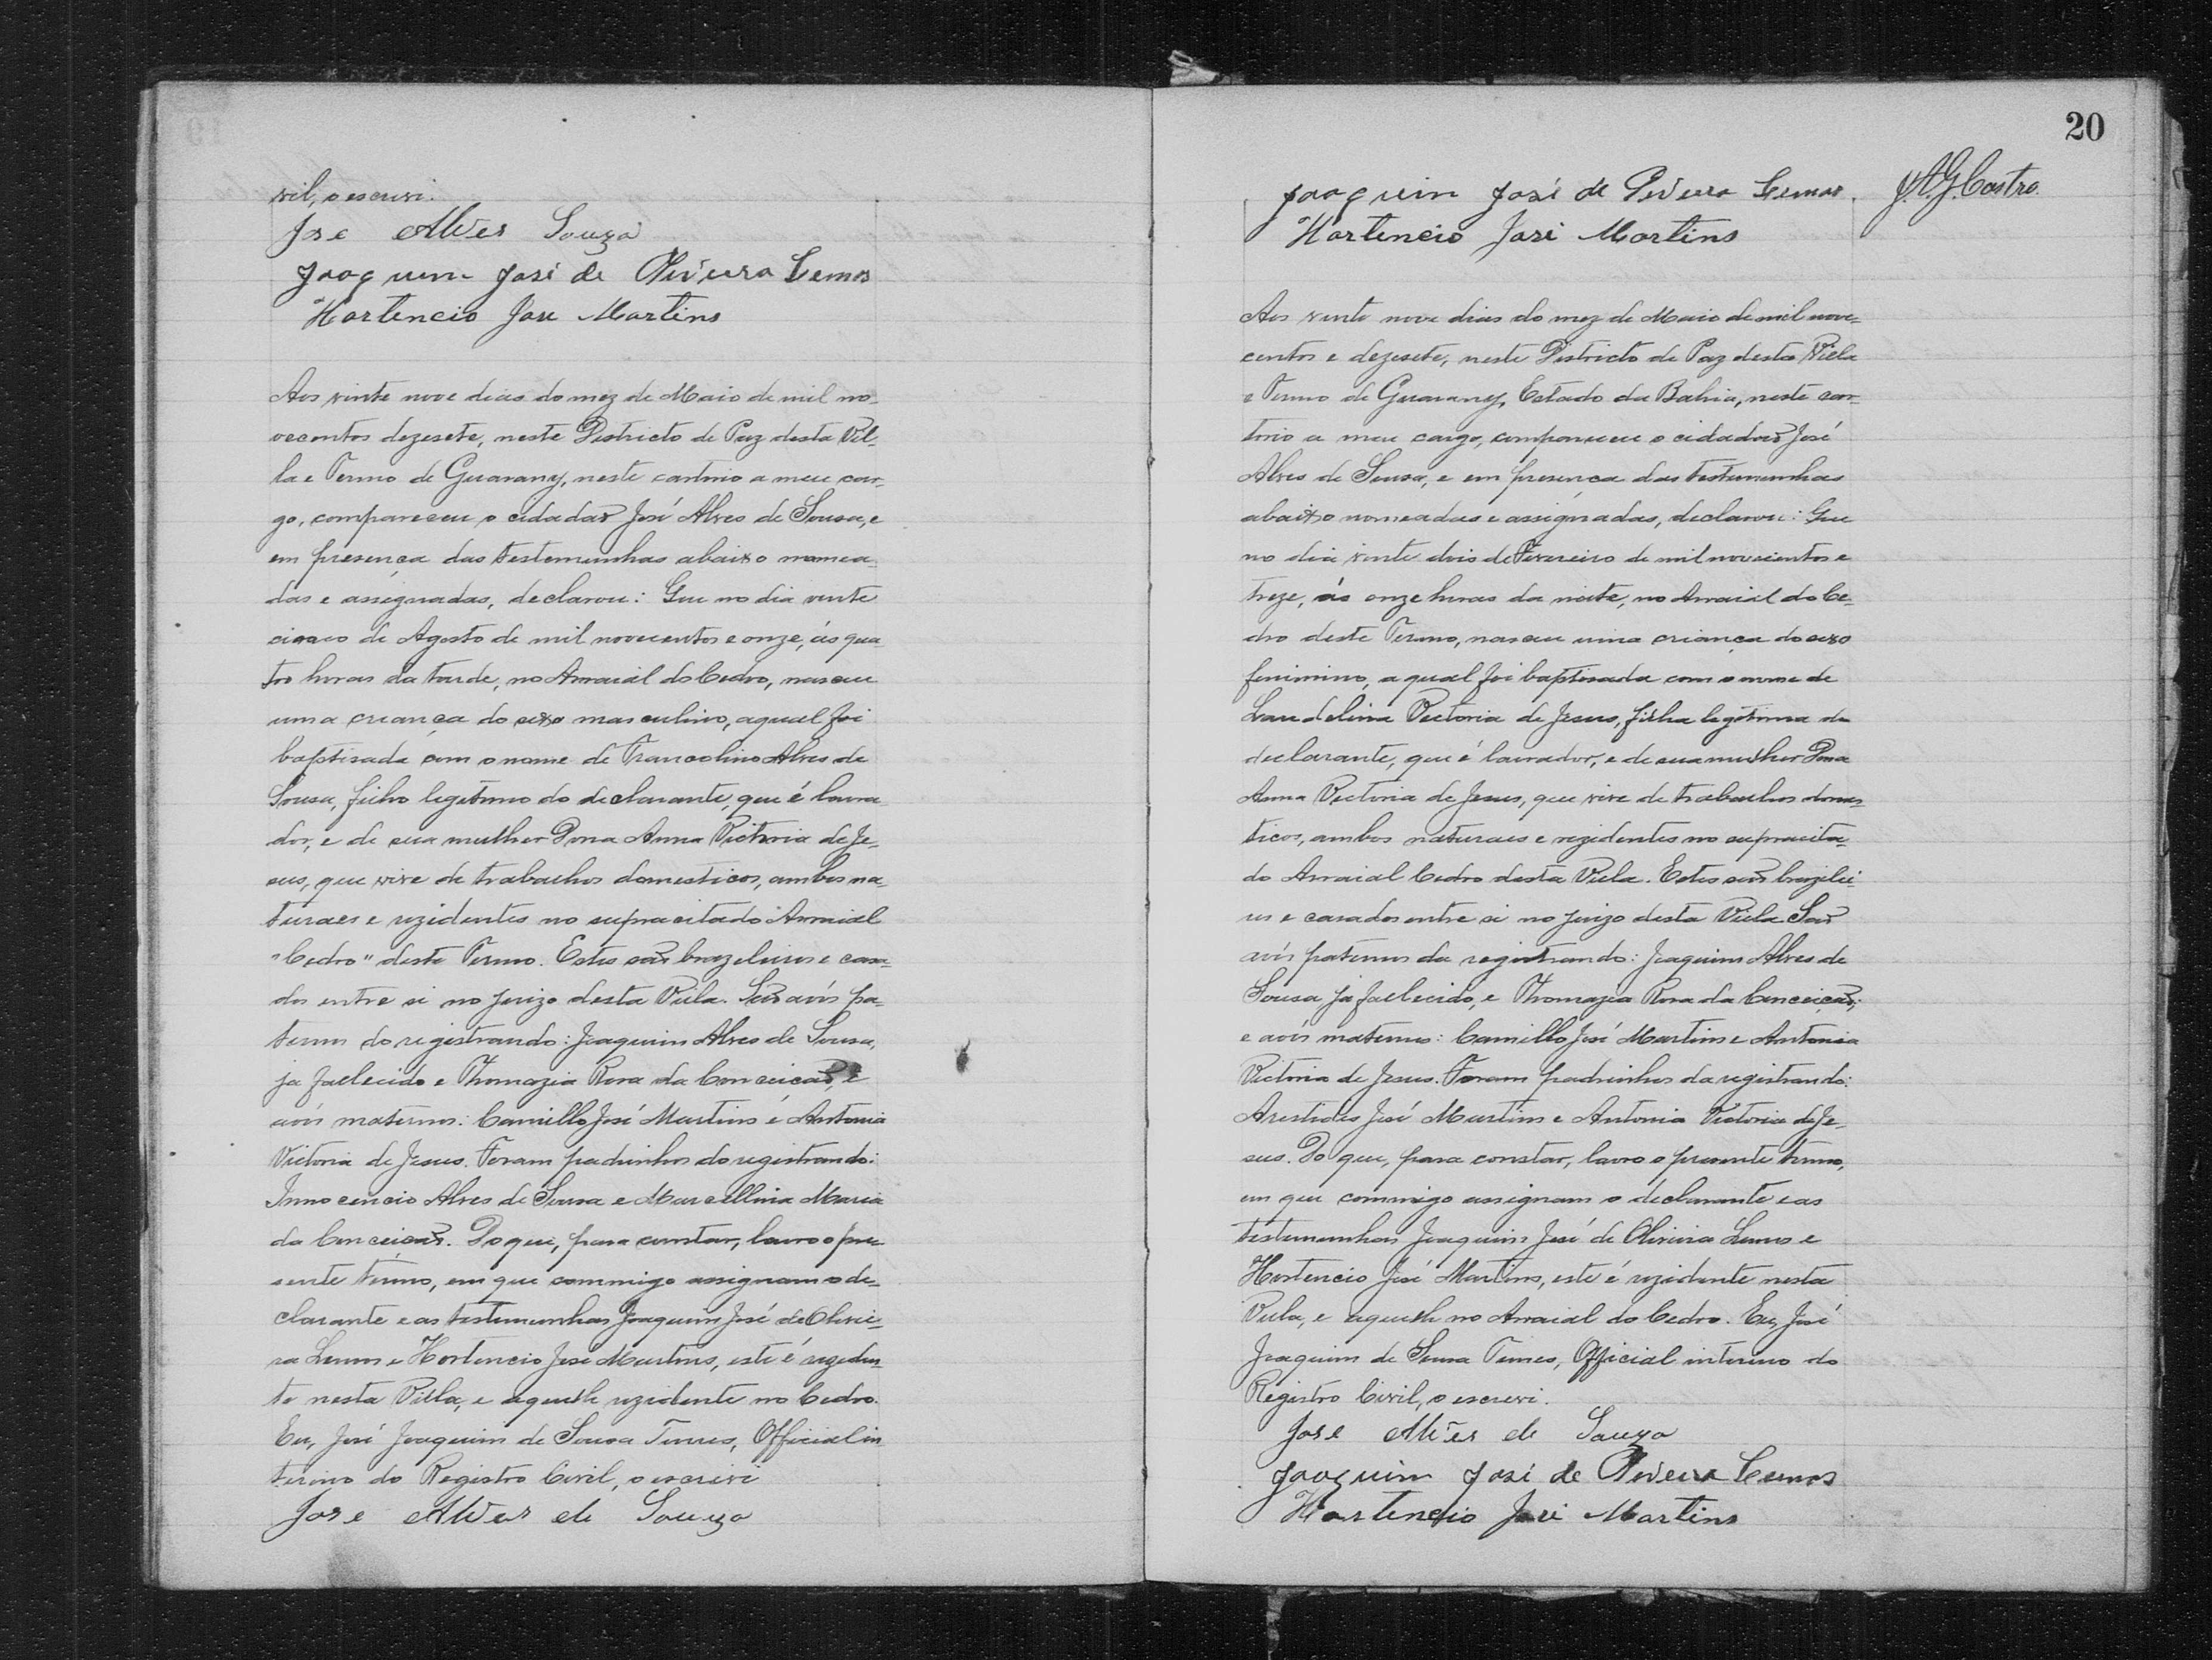 vil, o escrevi.
Jose Alves Souza
Joaquim José de Oliveira Lemos
Hortencio Jose Martins
Aos vinte nove dias do mez de Maio de mil no-
vecentos dezesete, neste Districto de Paz desta Vil-
la e Termo de Guarany, neste cartorio a meu car-
go, compareceu o cidadão José Alves de Sousa, e
em presença das testemunhas abaixo nomea-
das e assignadas, declarou: Que no dia vinte
cinco de Agosto de mil novecentos e onze, ás qua-
tro horas da tarde, no Arraial do Cedro, nasceu
uma criança do sexo masculino, a qual foi
baptisada com o nome de Francolino Alves de
Sousa, filho legitimo do declarante, que é lavra-
dor, e de sua mulher Dona Anna Victoria de Je-
sus, que vive de trabalhos domesticos, ambos na-
turaes e rezidentes no supracitado Arraial
"Cedro" deste Termo. Estes são brazileiros e casa-
dos entre si no juizo desta Villa. São avós pa-
ternos do registrando: Joaquim Alves de Sousa,
ja fallecido e Thomazia Rosa da Conceição, e
avós maternos: Camillo José Martins e Antonia
Victoria de Jesus. Foram padrinhos do registrando:
Innocencio Alves de Sousa e Marcellina Maria
da Conceição. Do que, para constar, lavro o pre-
sente termo, em que commigo assignam o de-
clarante e as testemunhas Joaquim José de Olivei-
ra Lemos e Hortencio José Martins, este é reziden-
te nesta Villa, e aquelle rezidente no Cedro.
Eu, José Joaquim de Sousa Torres, Official in-
terino do Registro Civil, o escrevi
Jose Alves de Souza
20
J.A.G. Castro.
Joaquim José de Oliveira Lemos.
Hortencio José Martins
Aos vinte nove dias do mez de Maio de mil nove-
centos e dezesete, neste Districto de Paz desta Villa
e Termo de Guarany, Estado da Bahia, neste car-
torio a meu cargo, compareceu o cidadão José
Alves de Sousa, e em presença das testemunhas
abaixo nomeadas e assignadas, declarou: Que
no dia vinte dois de Fevereiro de mil novecentos e
treze, ás onze horas da noite, no Arraial do Ce-
dro deste Termo, nasceu uma criança do sexo
feminino, a qual foi baptisada com o nome de
Laudelina Victoria de Jesus, filha legitima do
declarante, que é lavrador, e de sua mulher Dona
Anna Victoria de Jesus, que vive de trabalhos domes-
ticos, ambos naturaes e rezidentes no supracita-
do Arraial Cedro desta Villa. Estes são brazilei-
ros e casados entre si no juizo desta Villa São
avós paternos da registrando: Joaquim Alves de
Sousa já fallecido, e Thomazia Rosa da Conceição;
e avós maternos: Camillo José Martins e Antonia
Victoria de Jesus. Foram padrinhos da registrando:
Arestides José Martins e Antonia Victoria de Je-
sus. Do que, para constar, lavro o presente termo,
em que commigo assignam o declarante e as
testemunhas Joaquim José de Oliveira Lemos e
Hortencio José Martins, este é rezidente nesta
Villa, e aquelle no Arraial do Cedro. Eu, José
Joaquim de Sousa Torres, Official interino do
Registro Civil, o escrevi.
Jose Alves de Souza
Joaquim José de Oliveira Lemos
Hortencio José Martins